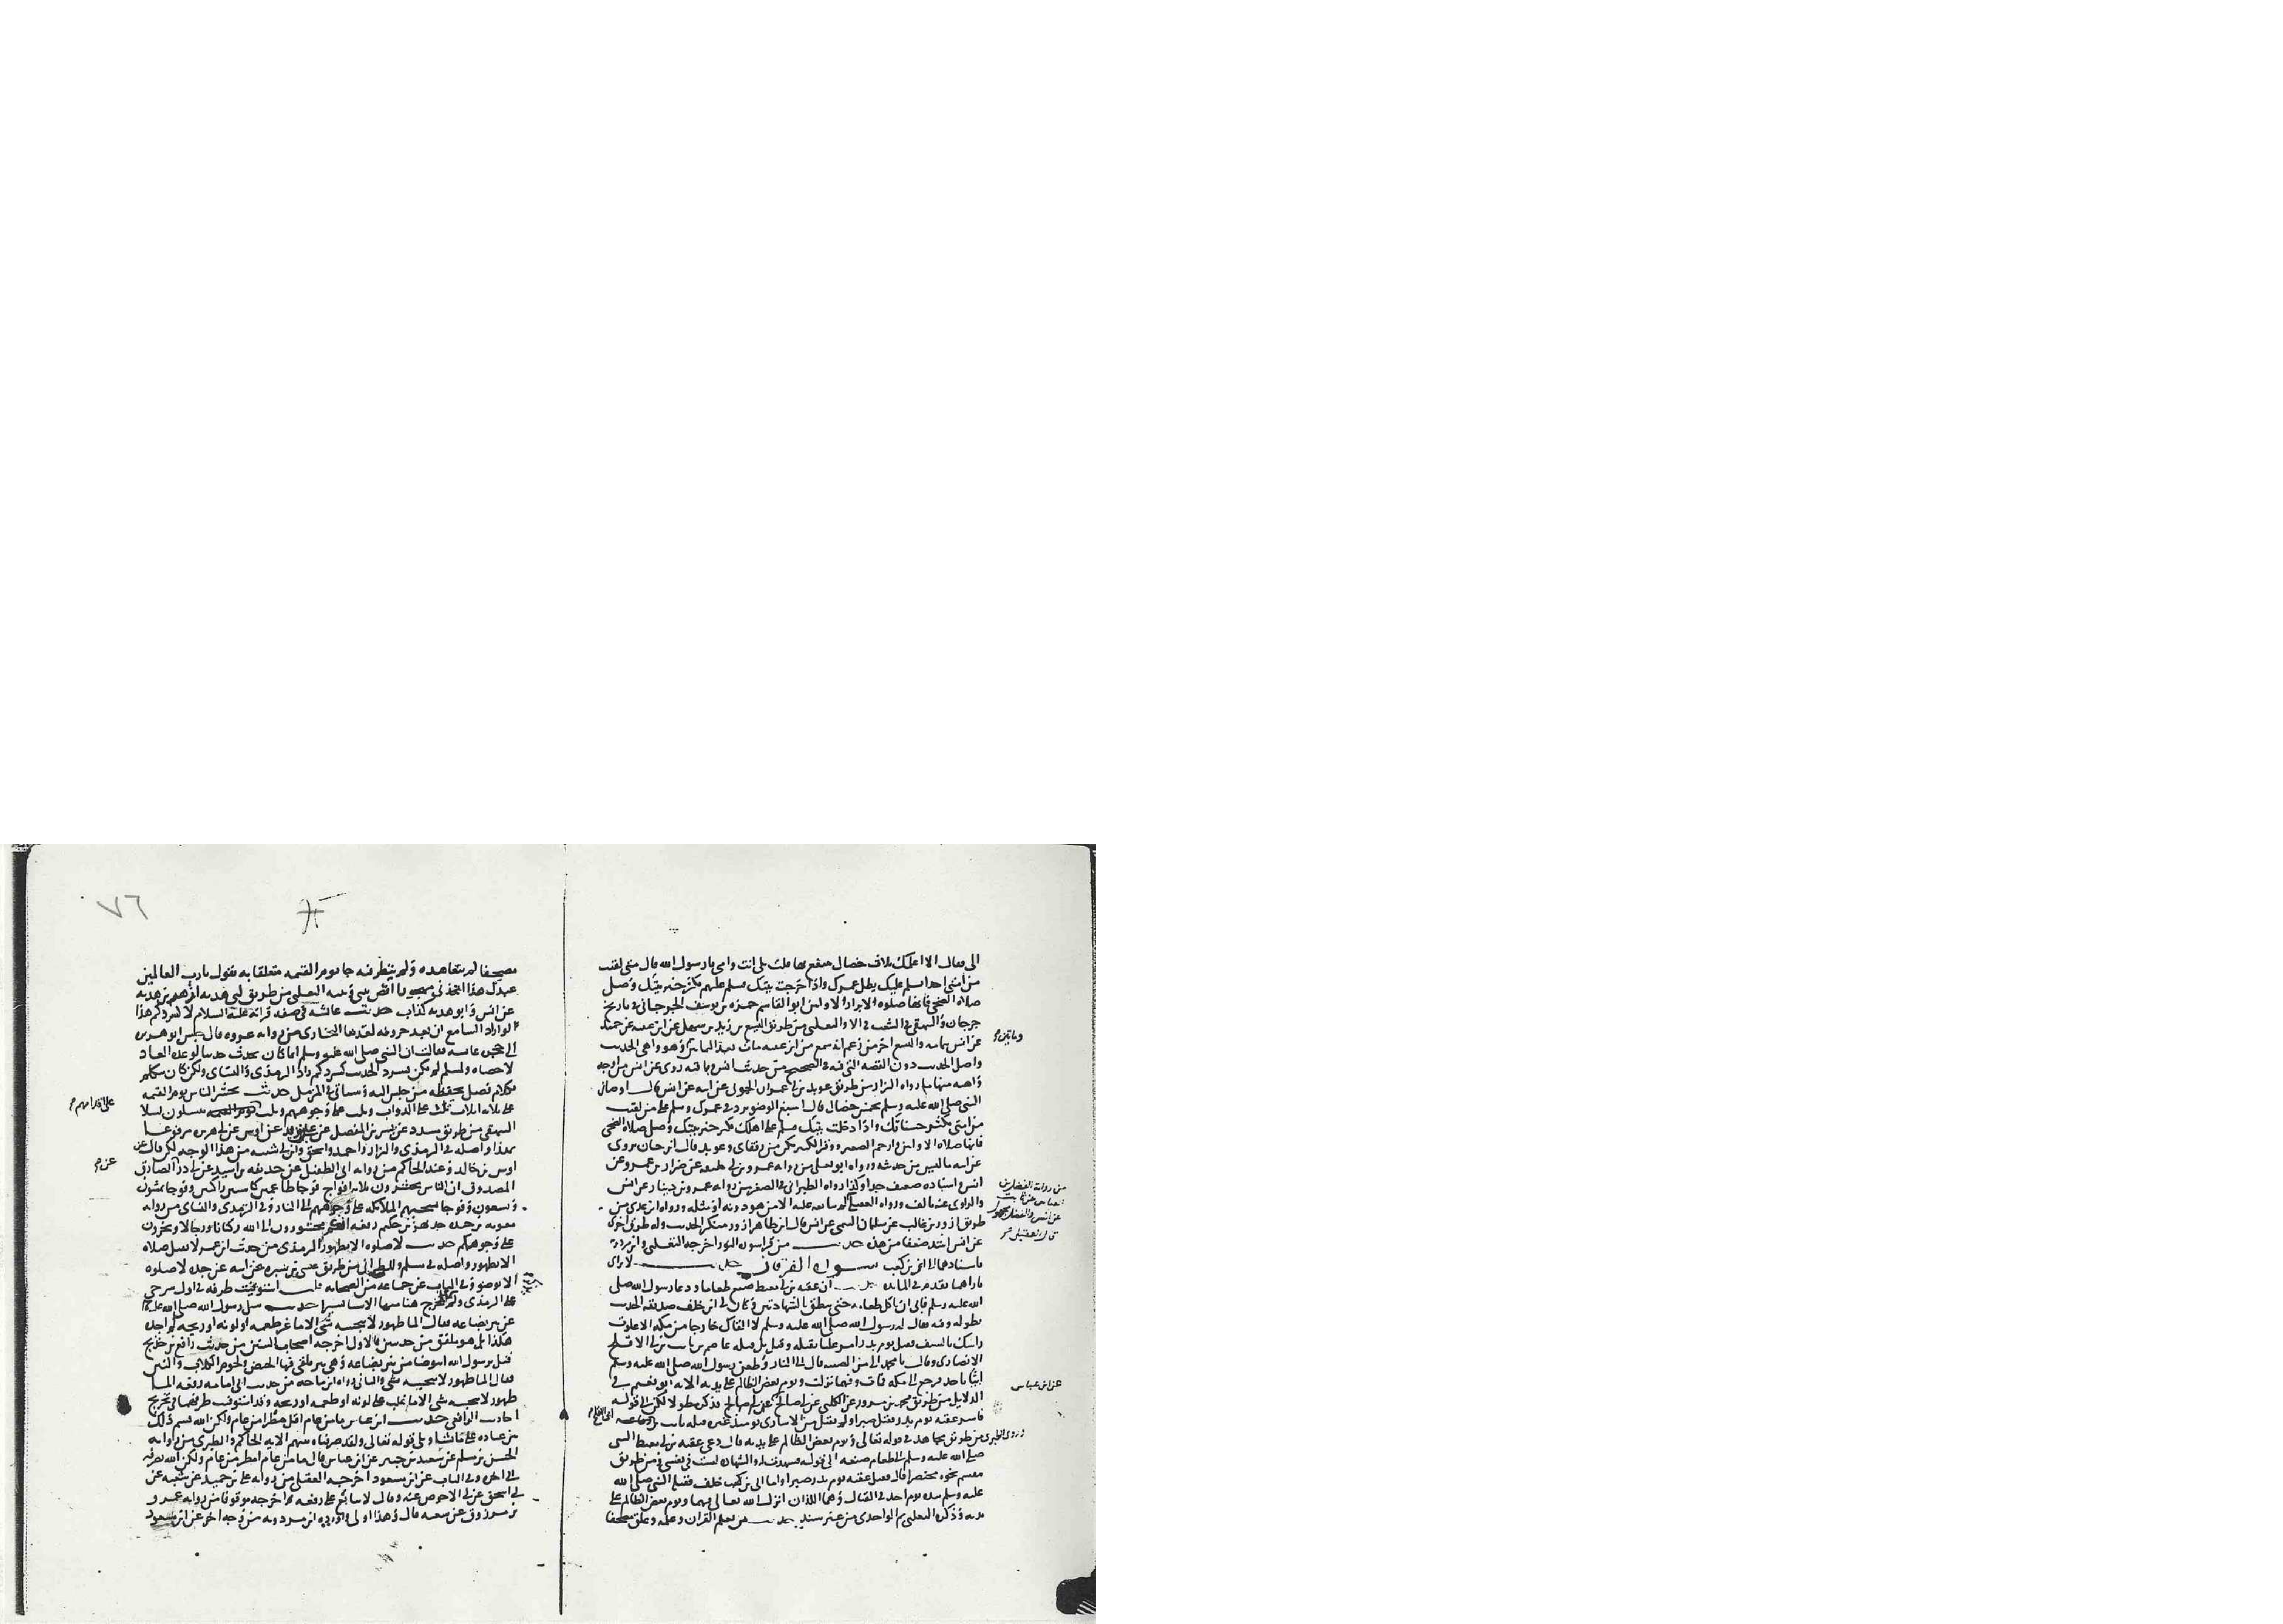 الى فقال الا اعلمك ثلاث خصال تنتفع بها قلت بلى بابى انت وامى يا رسول الله قال متى لقيت
من امتى احدا سلم عليك يطل عمرك واذا خرجت بيتك فسلم عليهم يكثر خير بيتك وصل
صلاة الضحى فانها صلوة الابرار الاوابين ابو القاسم حمزة بن يوسف الجرجانى فى تاريخ
جرجان والبيهقى فى الشعب والثعلبى من طريق اليسع بن زيد بن سهل عن ابن عيينة عن حميد
عن انس واليسع اخر من زعم انه سمع من ابن عيينة مات بعد الثمانين وهو واهى الحديث
واصل الحديث دون القصة التى فيه فى الصحيح من حديث انس روى عن انس من اوجه
واهية منها ما رواه البزار من طريق عويد بن ابى عمران الجونى عن ابيه عن انس قال اوصانى
النبى صلى الله عليه وسلم بخمس خصال قال اسبغ الوضوء يزد فى عمرك وسلم على من لقيت
من امتى تكثر حسناتك واذا دخلت بيتك فسلم على اهلك يكثر خير بيتك وصل صلاة الضحى
فانها صلاة الاوابين وارحم الصغير ووقر الكبير تكن من رفقاى وعويد قال ابن حبان يروى
عن ابيه ما ليس من حديثه ورواه ابو يعلى من رواية عمرو بن ابى خليفة عن ضرار بن عمرو عن
انس واسناده ضعيف جدا وكذا رواه الطبرانى فى الصغير من رواية عمرو بن دينار عن انس
والراوى عنه تالف ورواه العقيلى
طريق ازور بن غالب عن سلمان التيمى عن انس قال ابن طاهر ازور منكر الحديث وله طريق اخرى
عن انس اشد ضعفا من هذه حديث من قرا سورة النور اخرجه الثعلبى وابن مردويه
باسنادهما الى ابى بن كعب سورة الفرقان حديث لا تراى
ناراهما تقدم فى المائدة حديث ان عقبة بن ابى معيط صنع طعاما ودعا رسول الله صلى
الله عليه وسلم فابى ان ياكل طعامه حتى ينطق بالشهادتين وكان ابى بن خلف صديقه الحديث
بطوله وفيه فقال له رسول الله صلى الله عليه وسلم لا القاك خارجا من مكة الا علوت
راسك بالسيف فقتل يوم بدر امر عليا بقتله وقيل بل قتله عاصم بن ثابت بن ابى الاقلح
الانصارى وقال يا محمد الى من الصبية قال الى النار وطعن رسول الله صلى الله عليه وسلم
ابيا باحد فرجع الى مكة فمات وفيهما نزلت ويوم يعض الظالم على يديه الاية ابو نعيم فى
الدلايل من طريق محمد بن مروان عن الكلبى عن ابى صالح فذكره مطولا لكن الى قوله
فاسر عقبة يوم بدر فقتل صبرا ولم يقتل من الاسارى يوميذ غيره قتله ثابت بن
وروى الطبرى من طريق مجاهد فى قوله تعالى ويوم يعض الظالم على يديه قال دعى عقبة بن ابى معيط النبى
صلى الله عليه وسلم لطعام صنعه الى قوله فشهدت له والشهادة ليست فى نفسى ومن طريق
مقسم نحوه مختصرا قال فقتل عقبة يوم بدر صبرا واما ابى بن خلف فقتله النبى صلى الله
عليه وسلم بيده يوم احد فى القتال وهما اللذان انزل الله تعالى فيهما ويوم يعض الظالم على
يديه وذكره الثعلبى ثم الواحدى من غير سند حديث من تعلم القران وعلمه وعلق مصحفا
وثابت
من رواية الفضل بن
العباس عن ثابت
عن انس والفضل مجهول
قاله العقيلى
عن ابن عباس
٧٦
مصحفا لم يتعاهده ولم ينظر فيه جا يوم القيمة متعلقا به يقول يا رب العالمين
عبدك هذا اتخذنى مهجورا اقض بينى وبينه الثعلبى من طريق ابى هدبة ابرهيم بن هدبة
عن انس وابو هدبة كذاب حديث عائشة فى صفة قرآته عليه السلام لا كسردكم هذا
لو اراد السامع ان يعد حروفه لعدها البخارى من رواية عروة قال جلس ابو هريرة
الى حجرة عائشة فقالت ان النبى صلى الله عليه وسلم انما كان يحدث حديثا لو عده العاد
لاحصاه ولمسلم لم يكن يسرد الحديث كسردكم زاد الترمذى والنساى ولكن كان يتكلم
بكلام فصل يحفظه من جلس اليه وسياتى فى المزمل حديث يحشر الناس يوم القيمة
على ثلاثة اثلاث ثلث على الدواب وثلث على وجوههم وثلث ينسلون نسلا
البيهقى من طريق مسدد عن بشر بن المفضل عن على بن زيد عن اوس عن ابى هريرة مرفوعا
بهذا واصله فى الترمذى والبزار واحمد واسحق وابن ابى شيبة من هذا الوجه لكن قال عن
اوس بن خالد وعند الحاكم من رواية ابى الطفيل عن حذيفة بن اسيد عن ابى ذر الصادق
المصدوق ان الناس يحشرون ثلاثة افواج فوجا طاعمين كاسين راكبين وفوجا يمشون
ويسعون وفوجا تسحبهم الملائكة على وجوههم الى النار وفى الترمذى والنساى من رواية
معوية بن حيدة جد بهز بن حكيم رفعه انكم محشورون الى الله ركبانا ورجالا وتجرون
على وجوهكم حديث لا صلوة الا بطهور الترمذى من حديث ابن عمر لا تقبل صلاة
الا بطهور واصله فى مسلم وللطبرانى من طريق عيسى بن سبرة عن ابيه عن جده لا صلوة
الا بوضوء وفى الباب عن جماعة من الصحابة قلت استوفيت طرقه فى اول شرحى
على الترمذى ولم يخرج هنا منها الا يسيرا حديث سئل رسول الله صلى الله عليه
عن بئر بضاعة فقال الما طهور لا ينجسه شى الا ما غير طعمه او لونه او ريحه لم اجده
هكذا بل هو ملفق من حديثين فالاول اخرجه اصحاب السنن من حديث رافع بن خديج
قيل يرسول الله انتوضا من بئر بضاعة وهى بئر يلقى فيها الحيض ولحوم الكلاب والنتن
فقال الما طهور لا ينجسه شى والثانى رواه ابن ماجه من حديث ابى امامة رفعه الما
طهور لا ينجسه شى الا ما غلب على لونه او طعمه او ريحه وقد استوفيت طرقهما فى تخريج
احاديث الرافعى حديث ابن عباس ما من عام اقل مطرا من عام ولكن الله قسم ذلك
بين عباده على ما شا وتلى قوله تعالى ولقد صرفناه بينهم الاية الحاكم والطبرى من رواية
الحسن بن مسلم عن سعيد بن جبير عن ابن عباس قال ما من عام امطر من عام ولكن الله يصرفه
الى اخره وفى الباب عن ابن مسعود اخرجه العقيلى من رواية على بن حميد عن شعبة عن
ابى اسحق عن ابى الاحوص عنه وقال لا يتابع على رفعه ثم اخرجه موقوفا من رواية عمرو
بن مرزوق عن شعبة قال وهذا اولى واورده ابن مردويه من وجه اخر عن ابن مسعود
على اقدامهم
عن